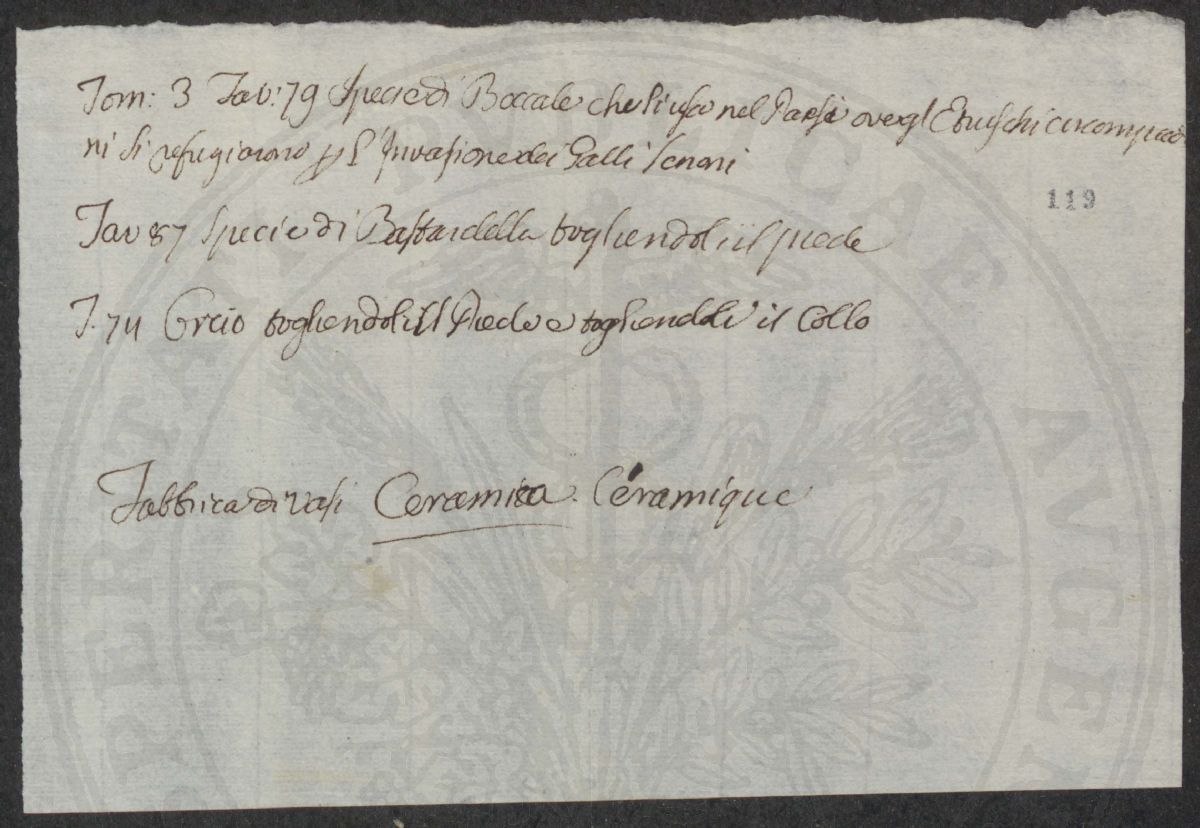 Tom: 3 Tav: 79 Specie di Boccale che si usa nel Paese ove gl Etruschi circompadani
ni si refugiarono p l'Invasione dei Galli Senoni
119
Tav 87 Specie di Bastardella togliendoli il piede
T. 74 Orcio togliendoli il Piede e togliendoli il Collo
Fabbrica di vasi Ceramica. Céramique
PUBLICAE AUGE
PERTATI